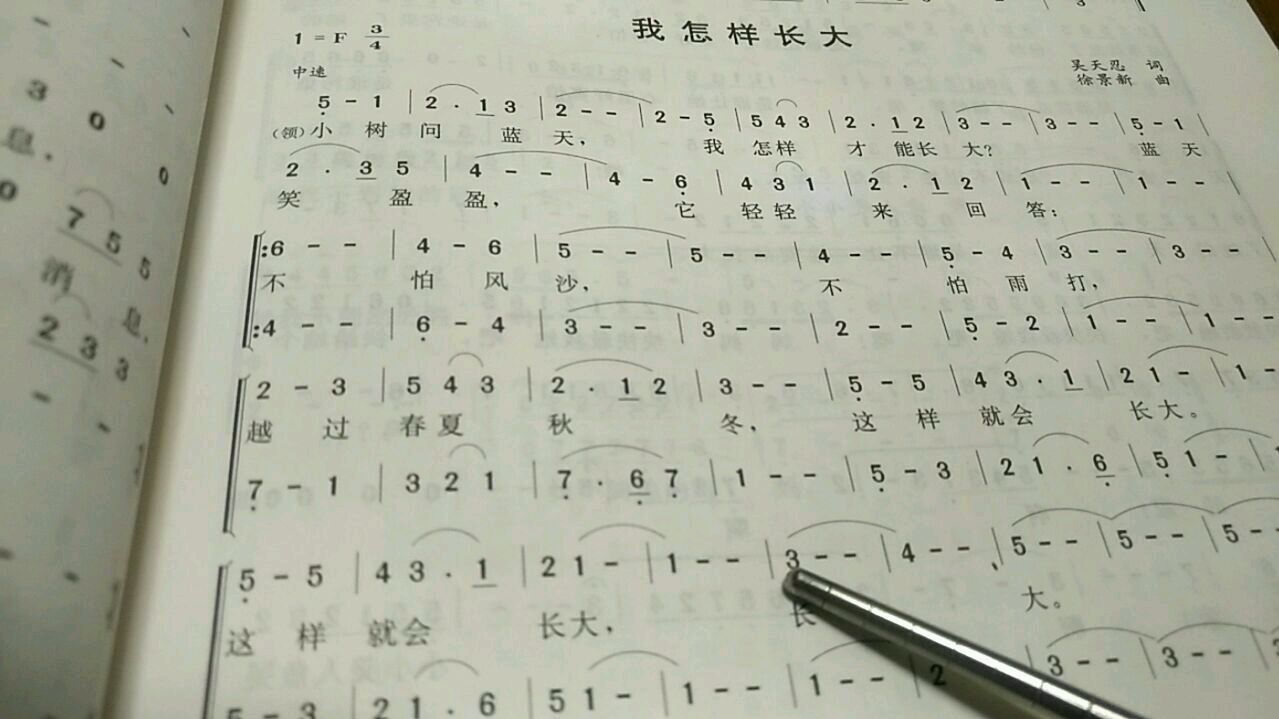 我怎样长大
1 = F 3/4
吴天忍 词
中速
徐景新 曲
5 - 1 | 2 · 1 3 | 2 - - | 2 - 5 | 5 4 3 | 2 · 1 2 | 3 - - | 3 - - | 5 - 1 |
(领)小 树 问 蓝 天， 我 怎样 才 能长 大? 蓝 天
2 · 3 5 | 4 - - | 4 - 6 | 4 3 1 | 2 · 1 2 | 1 - - | 1 - - |
笑 盈 盈， 它 轻轻 来 回 答：
:6 - - | 4 - 6 | 5 - - | 5 - - | 4 - - | 5 - 4 | 3 - - | 3 - - |
不 怕 风 沙， 不 怕 雨 打，
:4 - - | 6 - 4 | 3 - - | 3 - - | 2 - - | 5 - 2 | 1 - - | 1 - -
2 - 3 | 5 4 3 | 2 · 1 2 | 3 - - | 5 - 5 | 4 3 · 1 | 2 1 - | 1 -
越 过 春夏 秋 冬， 这 样 就会 长大。
7 - 1 | 3 2 1 | 7 · 6 7 | 1 - - | 5 - 3 | 2 1 · 6 | 5 1 - |
5 - 5 | 4 3 · 1 | 2 1 - | 1 - - | 3 - - | 4 - - | 5 - - | 5 - - | 5 -
这 样 就会 长大， 长 大。
5 - 3 | 2 1 · 6 | 5 1 - | 1 - - | 1 - - | 2 3 - - | 3 - - | 3 -
3 0
息，
0
7 5 5
消 息，
2 3 3